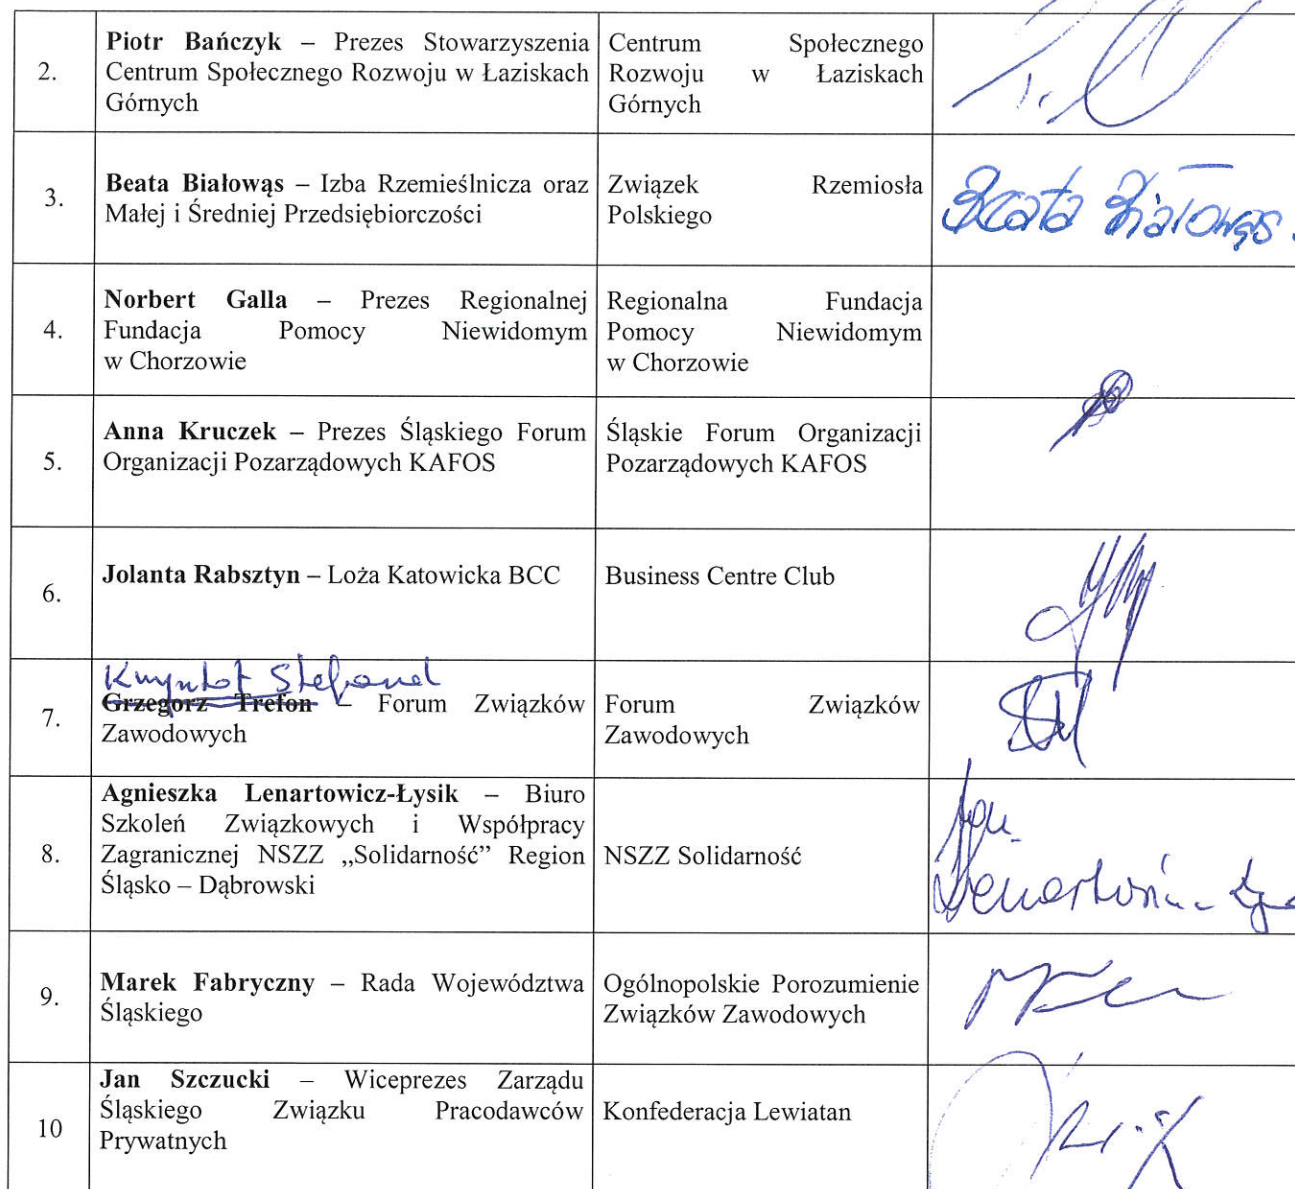 2.
Piotr Bańczyk – Prezes Stowarzyszenia
Centrum Społecznego Rozwoju w Łaziskach
Górnych
Centrum Społecznego
Rozwoju w Łaziskach
Górnych
3.
Beata Białowąs – Izba Rzemieślnicza oraz
Małej i Średniej Przedsiębiorczości
Związek Rzemiosła
Polskiego
Beata Białowąs
4.
Norbert Galla – Prezes Regionalnej
Fundacja Pomocy Niewidomym
w Chorzowie
Regionalna Fundacja
Pomocy Niewidomym
w Chorzowie
5.
Anna Kruczek – Prezes Śląskiego Forum
Organizacji Pozarządowych KAFOS
Śląskie Forum Organizacji
Pozarządowych KAFOS
6.
Jolanta Rabsztyn – Loża Katowicka BCC
Business Centre Club
7.
Grzegorz Trefon – Forum Związków
Zawodowych
Forum Związków
Zawodowych
8.
Agnieszka Lenartowicz-Łysik – Biuro
Szkoleń Związkowych i Współpracy
Zagranicznej NSZZ „Solidarność” Region
Śląsko – Dąbrowski
NSZZ Solidarność
9.
Marek Fabryczny – Rada Województwa
Śląskiego
Ogólnopolskie Porozumienie
Związków Zawodowych
10
Jan Szczucki – Wiceprezes Zarządu
Śląskiego Związku Pracodawców
Prywatnych
Konfederacja Lewiatan